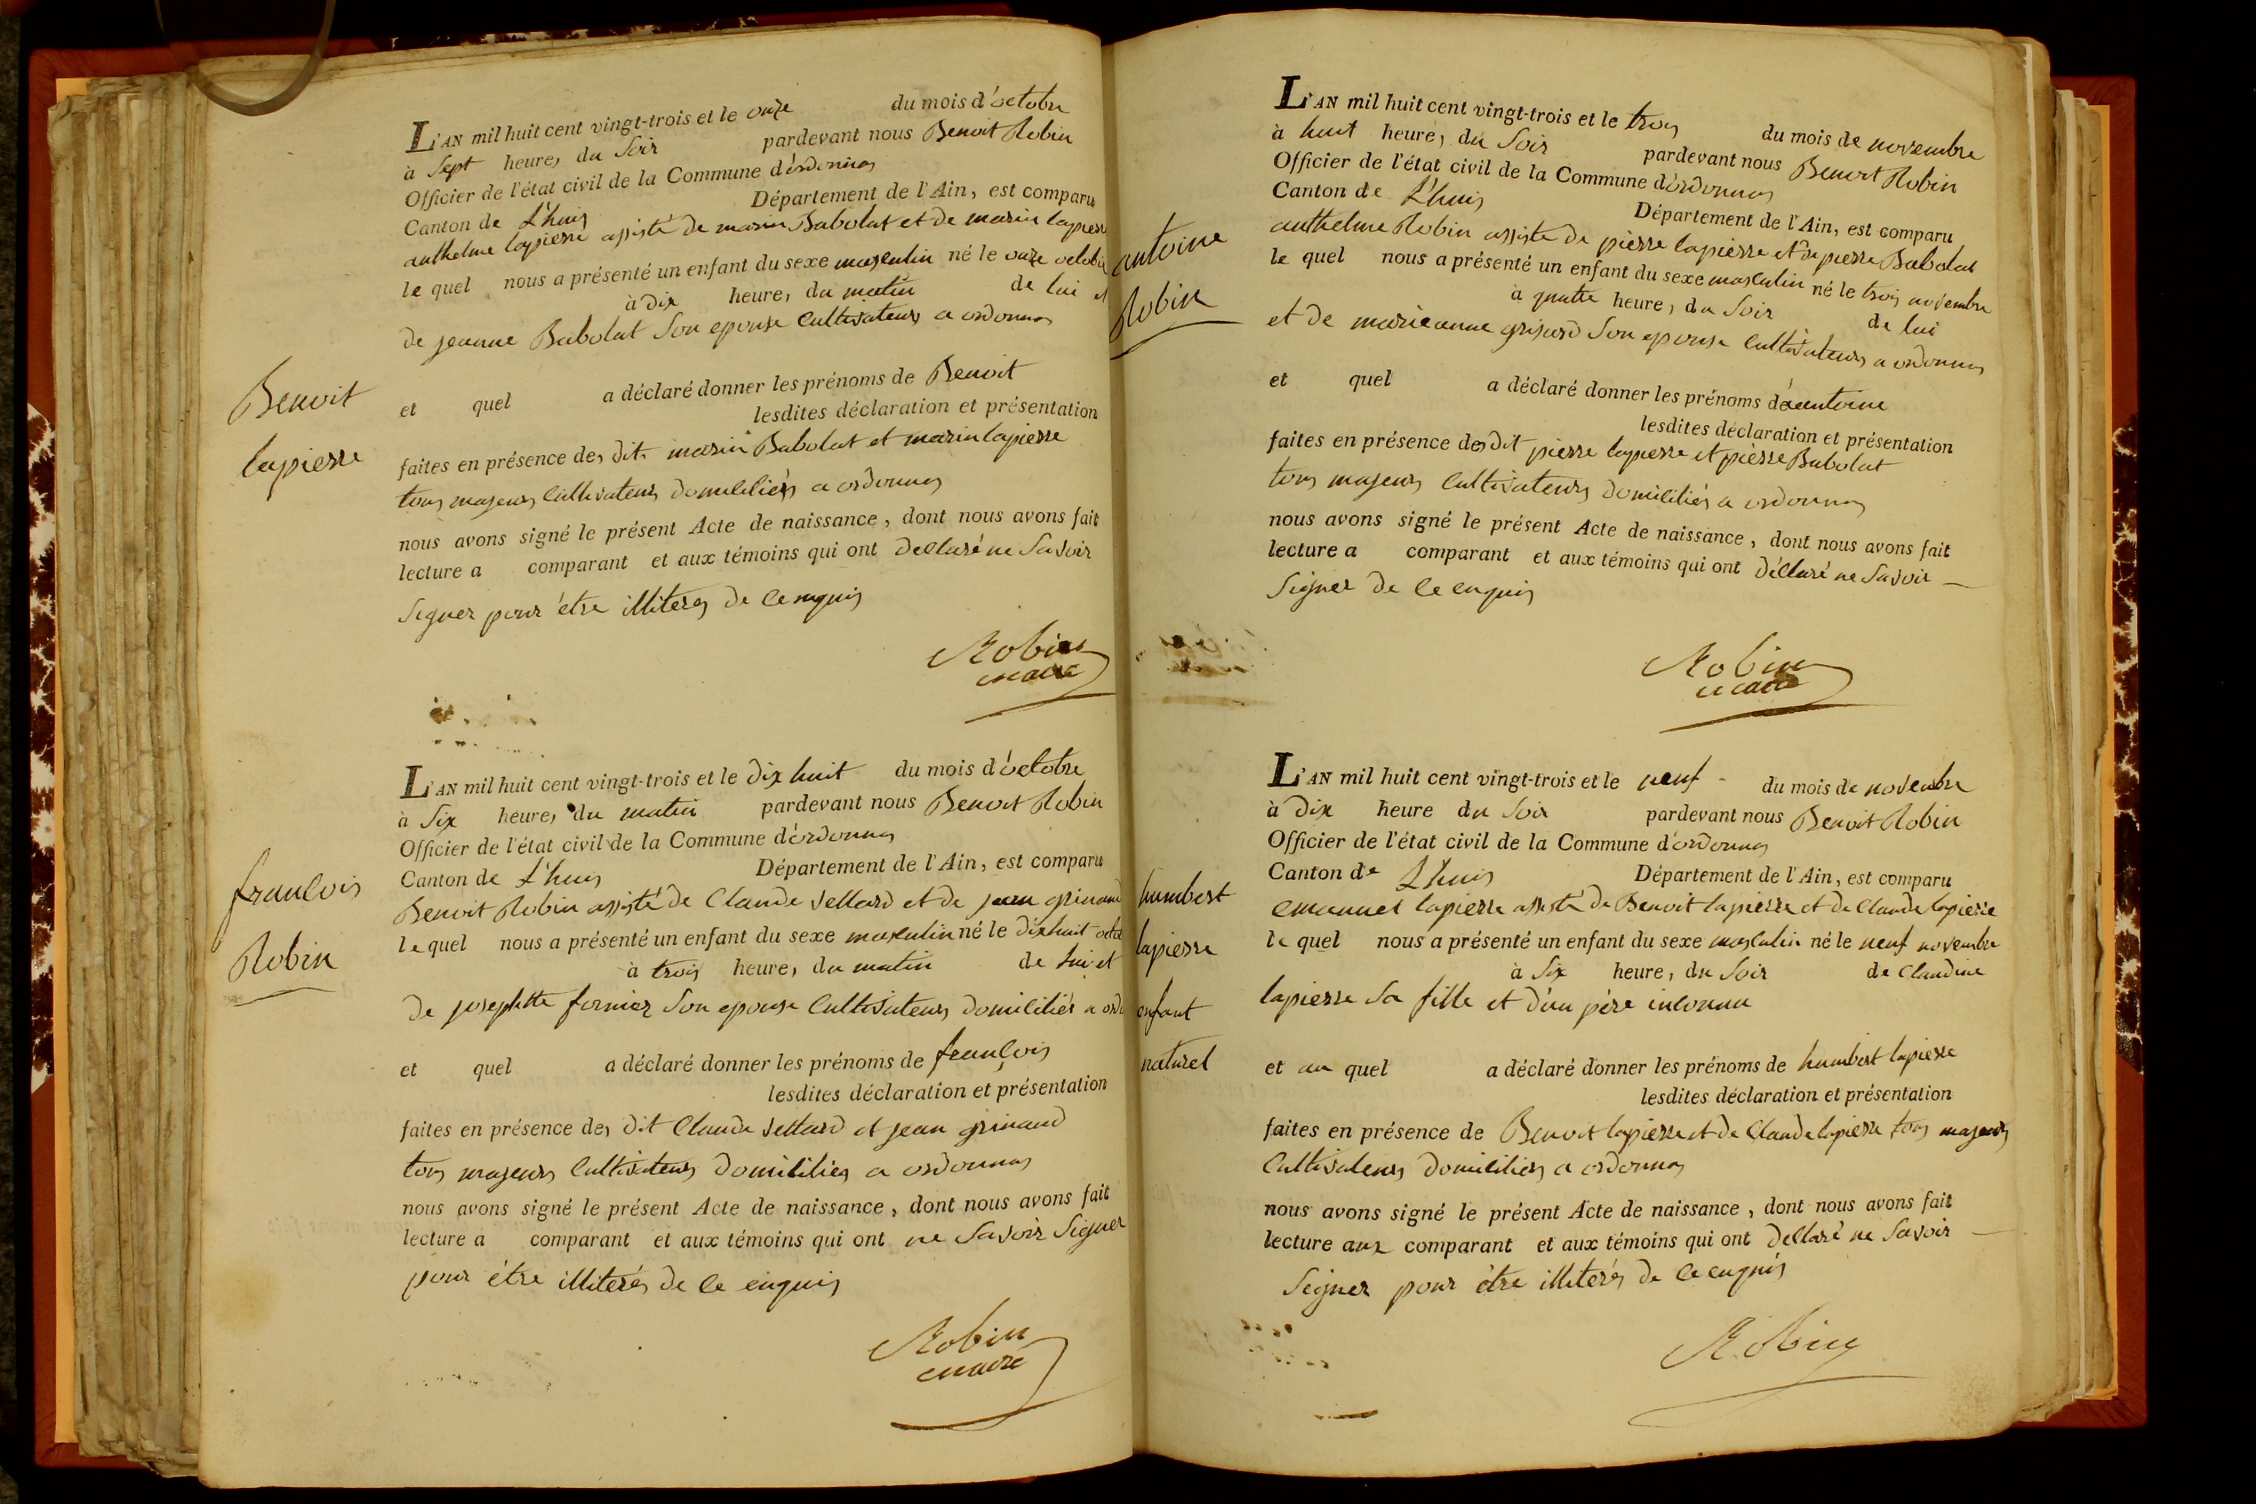 L'AN mil huit cent vingt-trois et le onze du mois d'octobre
à Sept heures du Soir pardevant nous Benoit Robin
Officier de l'état civil de la Commune d'ordonnas
Canton de L'huis Département de l'Ain, est comparu
anthelme lapierre assisté de marin Babolat et de marin lapierre
le quel nous a présenté un enfant du sexe masculin né le onze octobre
à dix heures du matin de lui et
de jeanne Babolat Son epouse Cultivateurs a ordonnas
Benoit
lapierre
et quel a déclaré donner les prénoms de Benoit
lesdites déclaration et présentation
faites en présence des dits marin Babolat et marin lapierre
tous majeurs Cultivateurs domiciliés a ordonnas
nous avons signé le présent Acte de naissance, dont nous avons fait
lecture a comparant et aux témoins qui ont déclaré ne Savoir
Signer pour être illiterés de ce enquis
Robin
maire
L'AN mil huit cent vingt-trois et le dix huit du mois d'octobre
à Six heures du matin pardevant nous Benoit Robin
Officier de l'état civil de la Commune d'ordonnas
Canton de L'huis Département de l'Ain, est comparu
Benoit Robin assisté de Claude Vettard et de jean grinand
françois
Robin
le quel nous a présenté un enfant du sexe masculin né le dix huit octob
à trois heures du matin de lui et
de josephte fornier Son epouse Cultivateurs domiciliés a ordo
et quel a déclaré donner les prénoms de françois
lesdites déclaration et présentation
faites en présence des dit Claude Vettard et jean grinand
tous majeurs Cultivateurs domiciliés a ordonnas
nous avons signé le présent Acte de naissance, dont nous avons fait
lecture a comparant et aux témoins qui ont ne Savoir Signer
pour être illiterés de ce enquis
Robin
maire
L'AN mil huit cent vingt-trois et le trois du mois de novembre
à huit heures du Soir pardevant nous Benoit Robin
Officier de l'état civil de la Commune d'ordonnas
Canton de L'huis Département de l'Ain, est comparu
anthelme Robin assisté de pierre lapierre et de pierre Babolat
antoine
Robin
le quel nous a présenté un enfant du sexe masculin né le trois novembre
à quatre heures du Soir de lui
et de marieanne grisard Son epouse Cultivateurs a ordonnas
et quel a déclaré donner les prénoms d'antoine
lesdites déclaration et présentation
faites en présence des dit pierre lapierre et pierre Babolat
tous majeurs Cultivateurs domiciliés a ordonnas
nous avons signé le présent Acte de naissance, dont nous avons fait
lecture a comparant et aux témoins qui ont déclaré ne Savoir
Signer de ce enquis
Robin
maire
L'AN mil huit cent vingt-trois et le neuf du mois de novembre
à Dix heure du Soir pardevant nous Benoit Robin
Officier de l'état civil de la Commune d'ordonnas
Canton de L'huis Département de l'Ain, est comparu
emanuel lapierre assisté de Benoit lapierre et de Claude lapierre
humbert
lapierre
enfant
naturel
le quel nous a présenté un enfant du sexe masculin né le neuf novembre
à Six heure, du Soir de Claudine
lapierre Sa fille et d'un père inconnu
et au quel a déclaré donner les prénoms de humbert lapierre
lesdites déclaration et présentation
faites en présence de Benoit lapierre et de Claude lapierre tous majeurs
Cultivateurs domiciliés a ordonnas
nous avons signé le présent Acte de naissance, dont nous avons fait
lecture aux comparant et aux témoins qui ont déclaré ne Savoir
Signer pour être illiterés de ce enquis
Robin